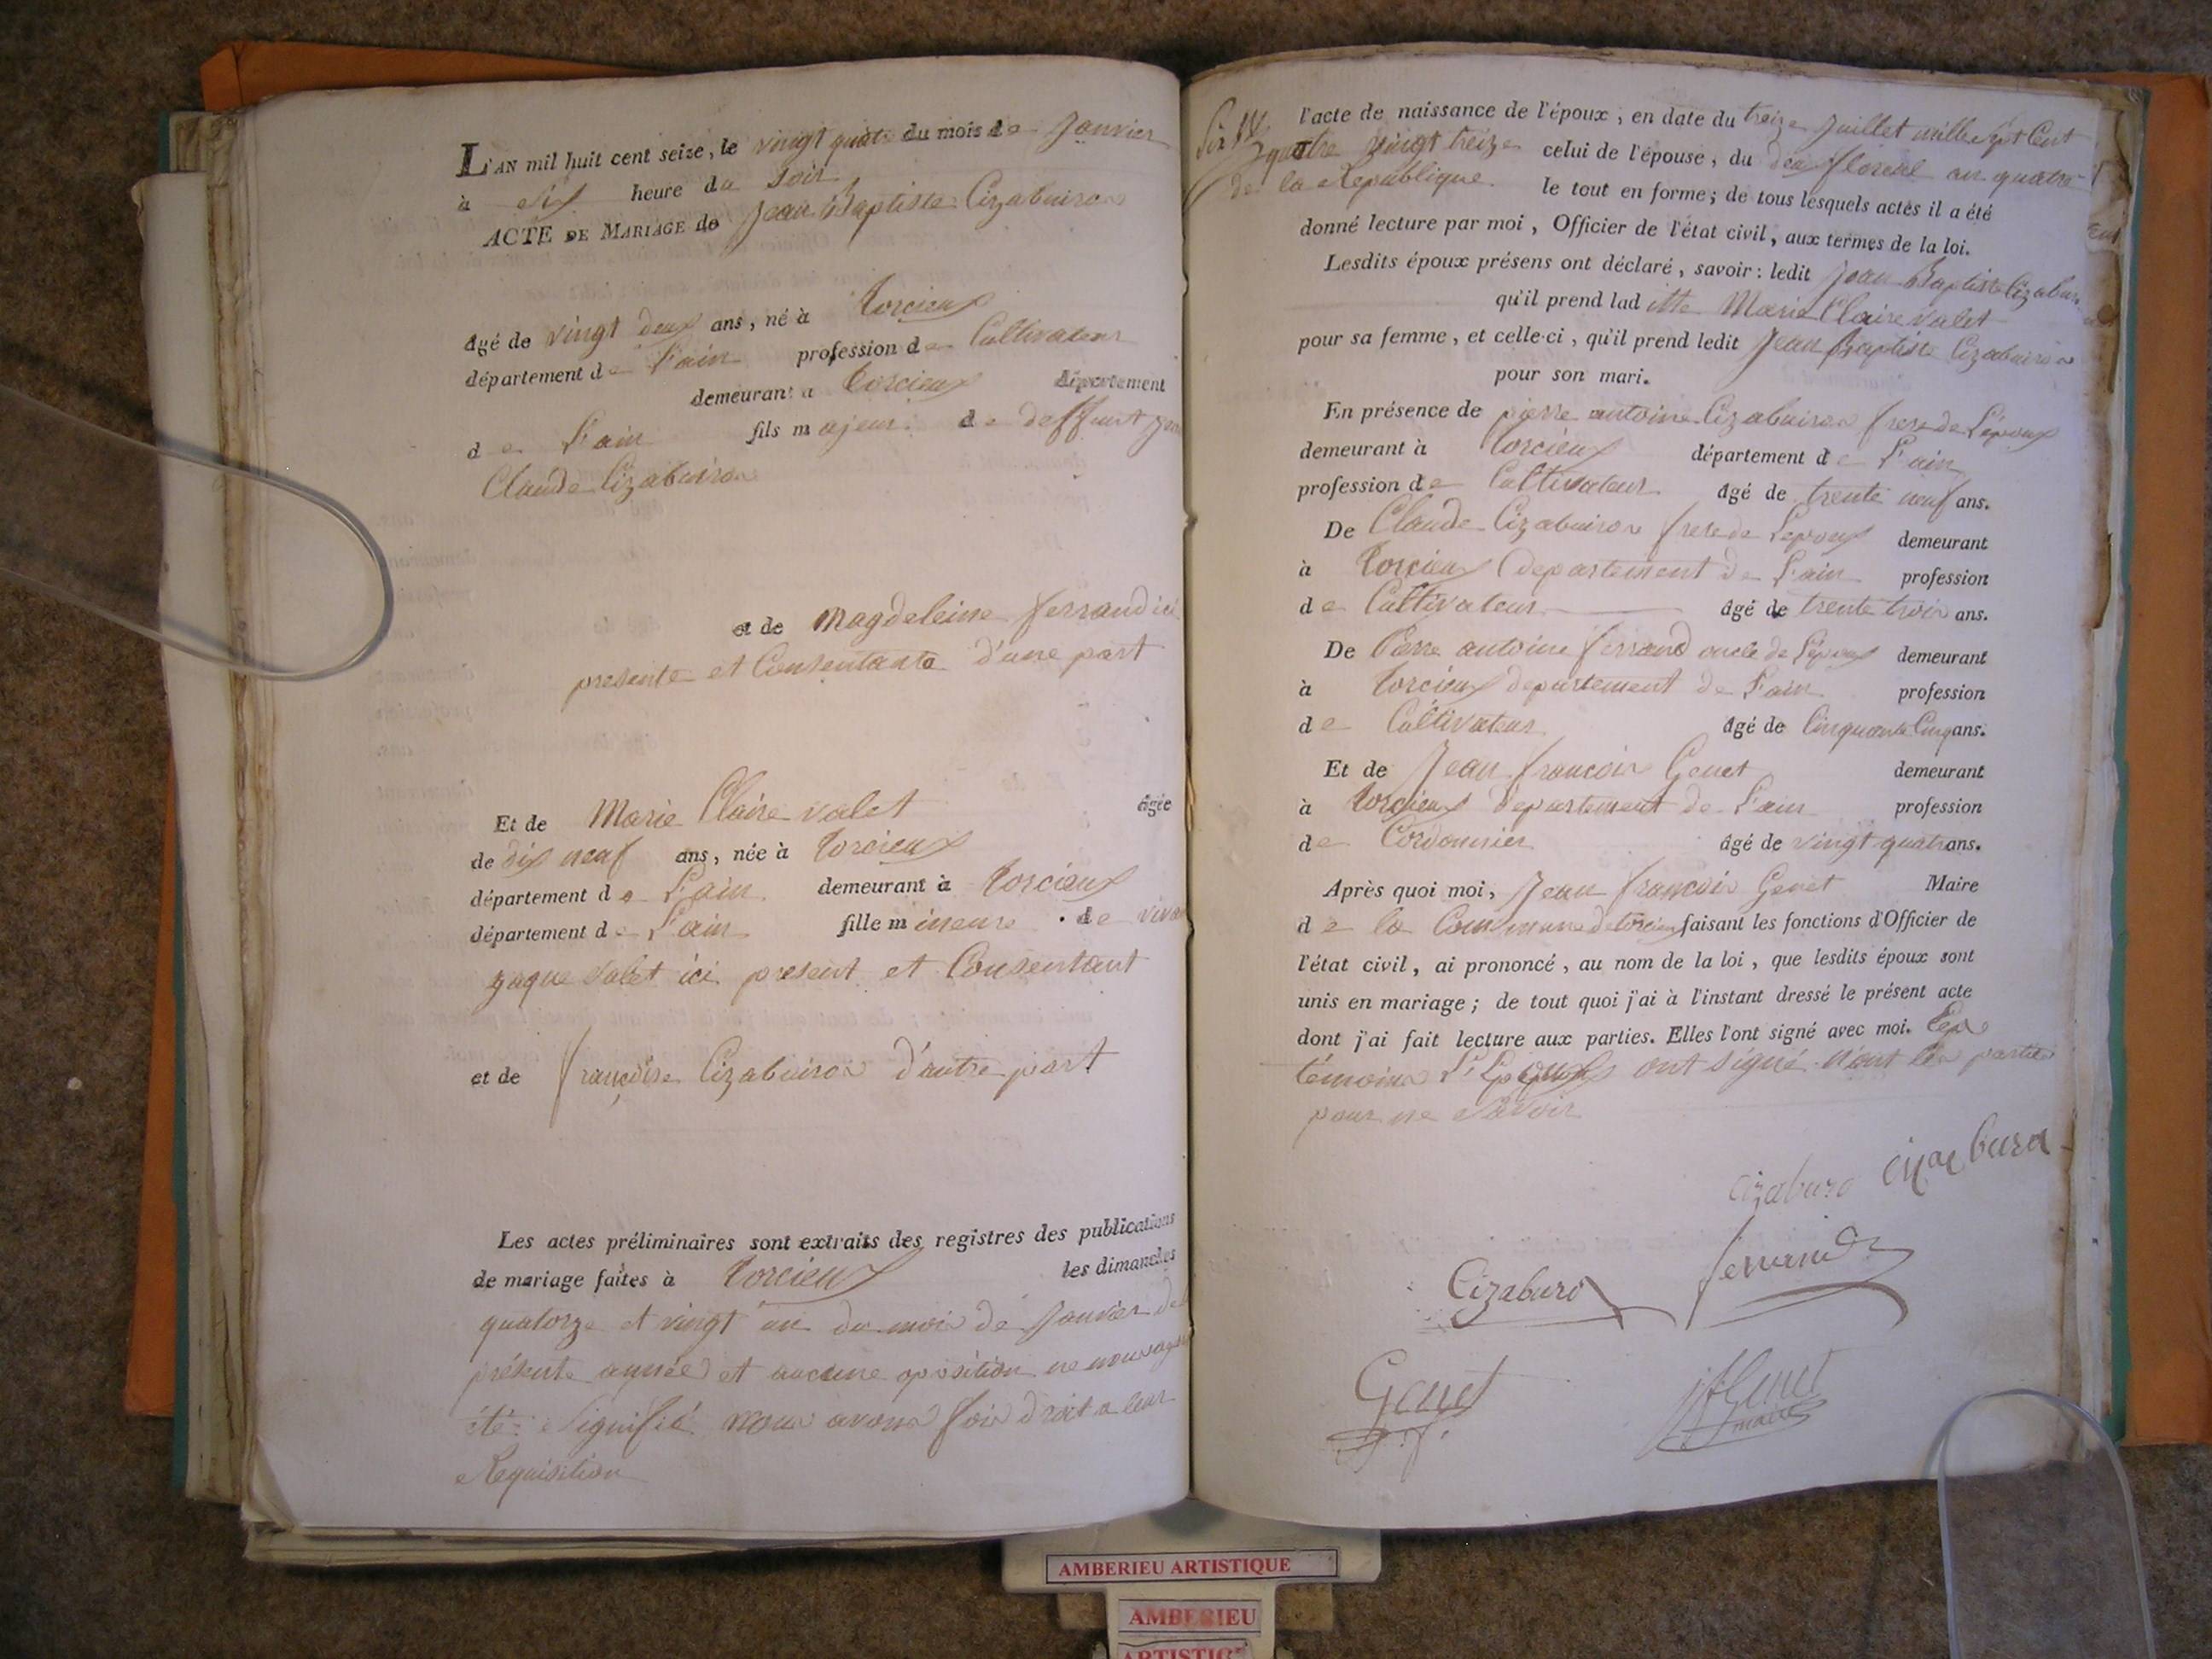 L'AN mil huit cent seize, le vingt quatre du mois de Janvier
à six heure du soir
ACTE DE MARIAGE de Jean Baptiste Cizabuiron
âgé de vingt deux ans, né à torcieux
département de L'ain profession de Cultivateur
demeurant a torcieux département
de L'ain fils majeur de deffunt
Claude Cizabuiron
et de Magdeleine ferrand ici
presente et Consentante d'une part
Et de Marie Claire valet âgée
de dix neuf ans, née à torcieux
département de L'ain demeurant à torcieux
département de L'ain fille mineure de
jaque valet ici present et Consentant
et de françoise Cizabuiron d'autre part
Les actes préliminaires sont extraits des registres des publications
de mariage faites à torcieux les dimanches
quatorze et vingt un du mois de Janvier de
présente année et aucune oposition ne nous
été signifié nous avons fait droit a leur
Requisition
l'acte de naissance de l'époux, en date du treize Juillet mille sept Cent
quatre vingt treize celui de l'épouse, du floreal an quatre
de la République. le tout en forme; de tous lesquels actes il a été
donné lecture par moi, Officier de l'état civil, aux termes de la loi.
Lesdits époux présens ont déclaré, savoir: ledit Jean Baptiste
qu'il prend laditte Marie Claire valet
pour sa femme, et celle-ci, qu'il prend ledit Jean Baptiste Cizabuiron
pour son mari.
En présence de pierre antoine Cizabuiron frere de L'époux
demeurant à torcieux département de L'ain
profession de Cultivateur âgé de trente neuf ans.
De Claude Cizabuiron frere de Lepoux demeurant
à torcieux departement de L'ain profession
de Cultivateur âgé de trente trois ans.
De Pierre antoine ferrand oncle de L'époux demeurant
à torcieux departement de L'ain profession
de Cultivateur âgé de Cinquante Cinq ans.
Et de Jean françois Genet demeurant
à torcieux departement de L'ain profession
de Cordonnier âgé de vingt quatre ans.
Après quoi moi, Jean françois Genet Maire
de la Commune de torcieux faisant les fonctions d'Officier de
l'état civil, ai prononcé, au nom de la loi, que lesdits époux sont
unis en mariage; de tout quoi j'ai à l'instant dressé le présent acte
dont j'ai fait lecture aux parties. Elles l'ont signé avec moi.
témoins ont signé non les parties
pour ne savoir
Cizaburo
Cizaburo ferrand
Genet JfGenet
maire
AMBERIEU ARTISTIQUE
AMBERIEU
ARTISTIQ